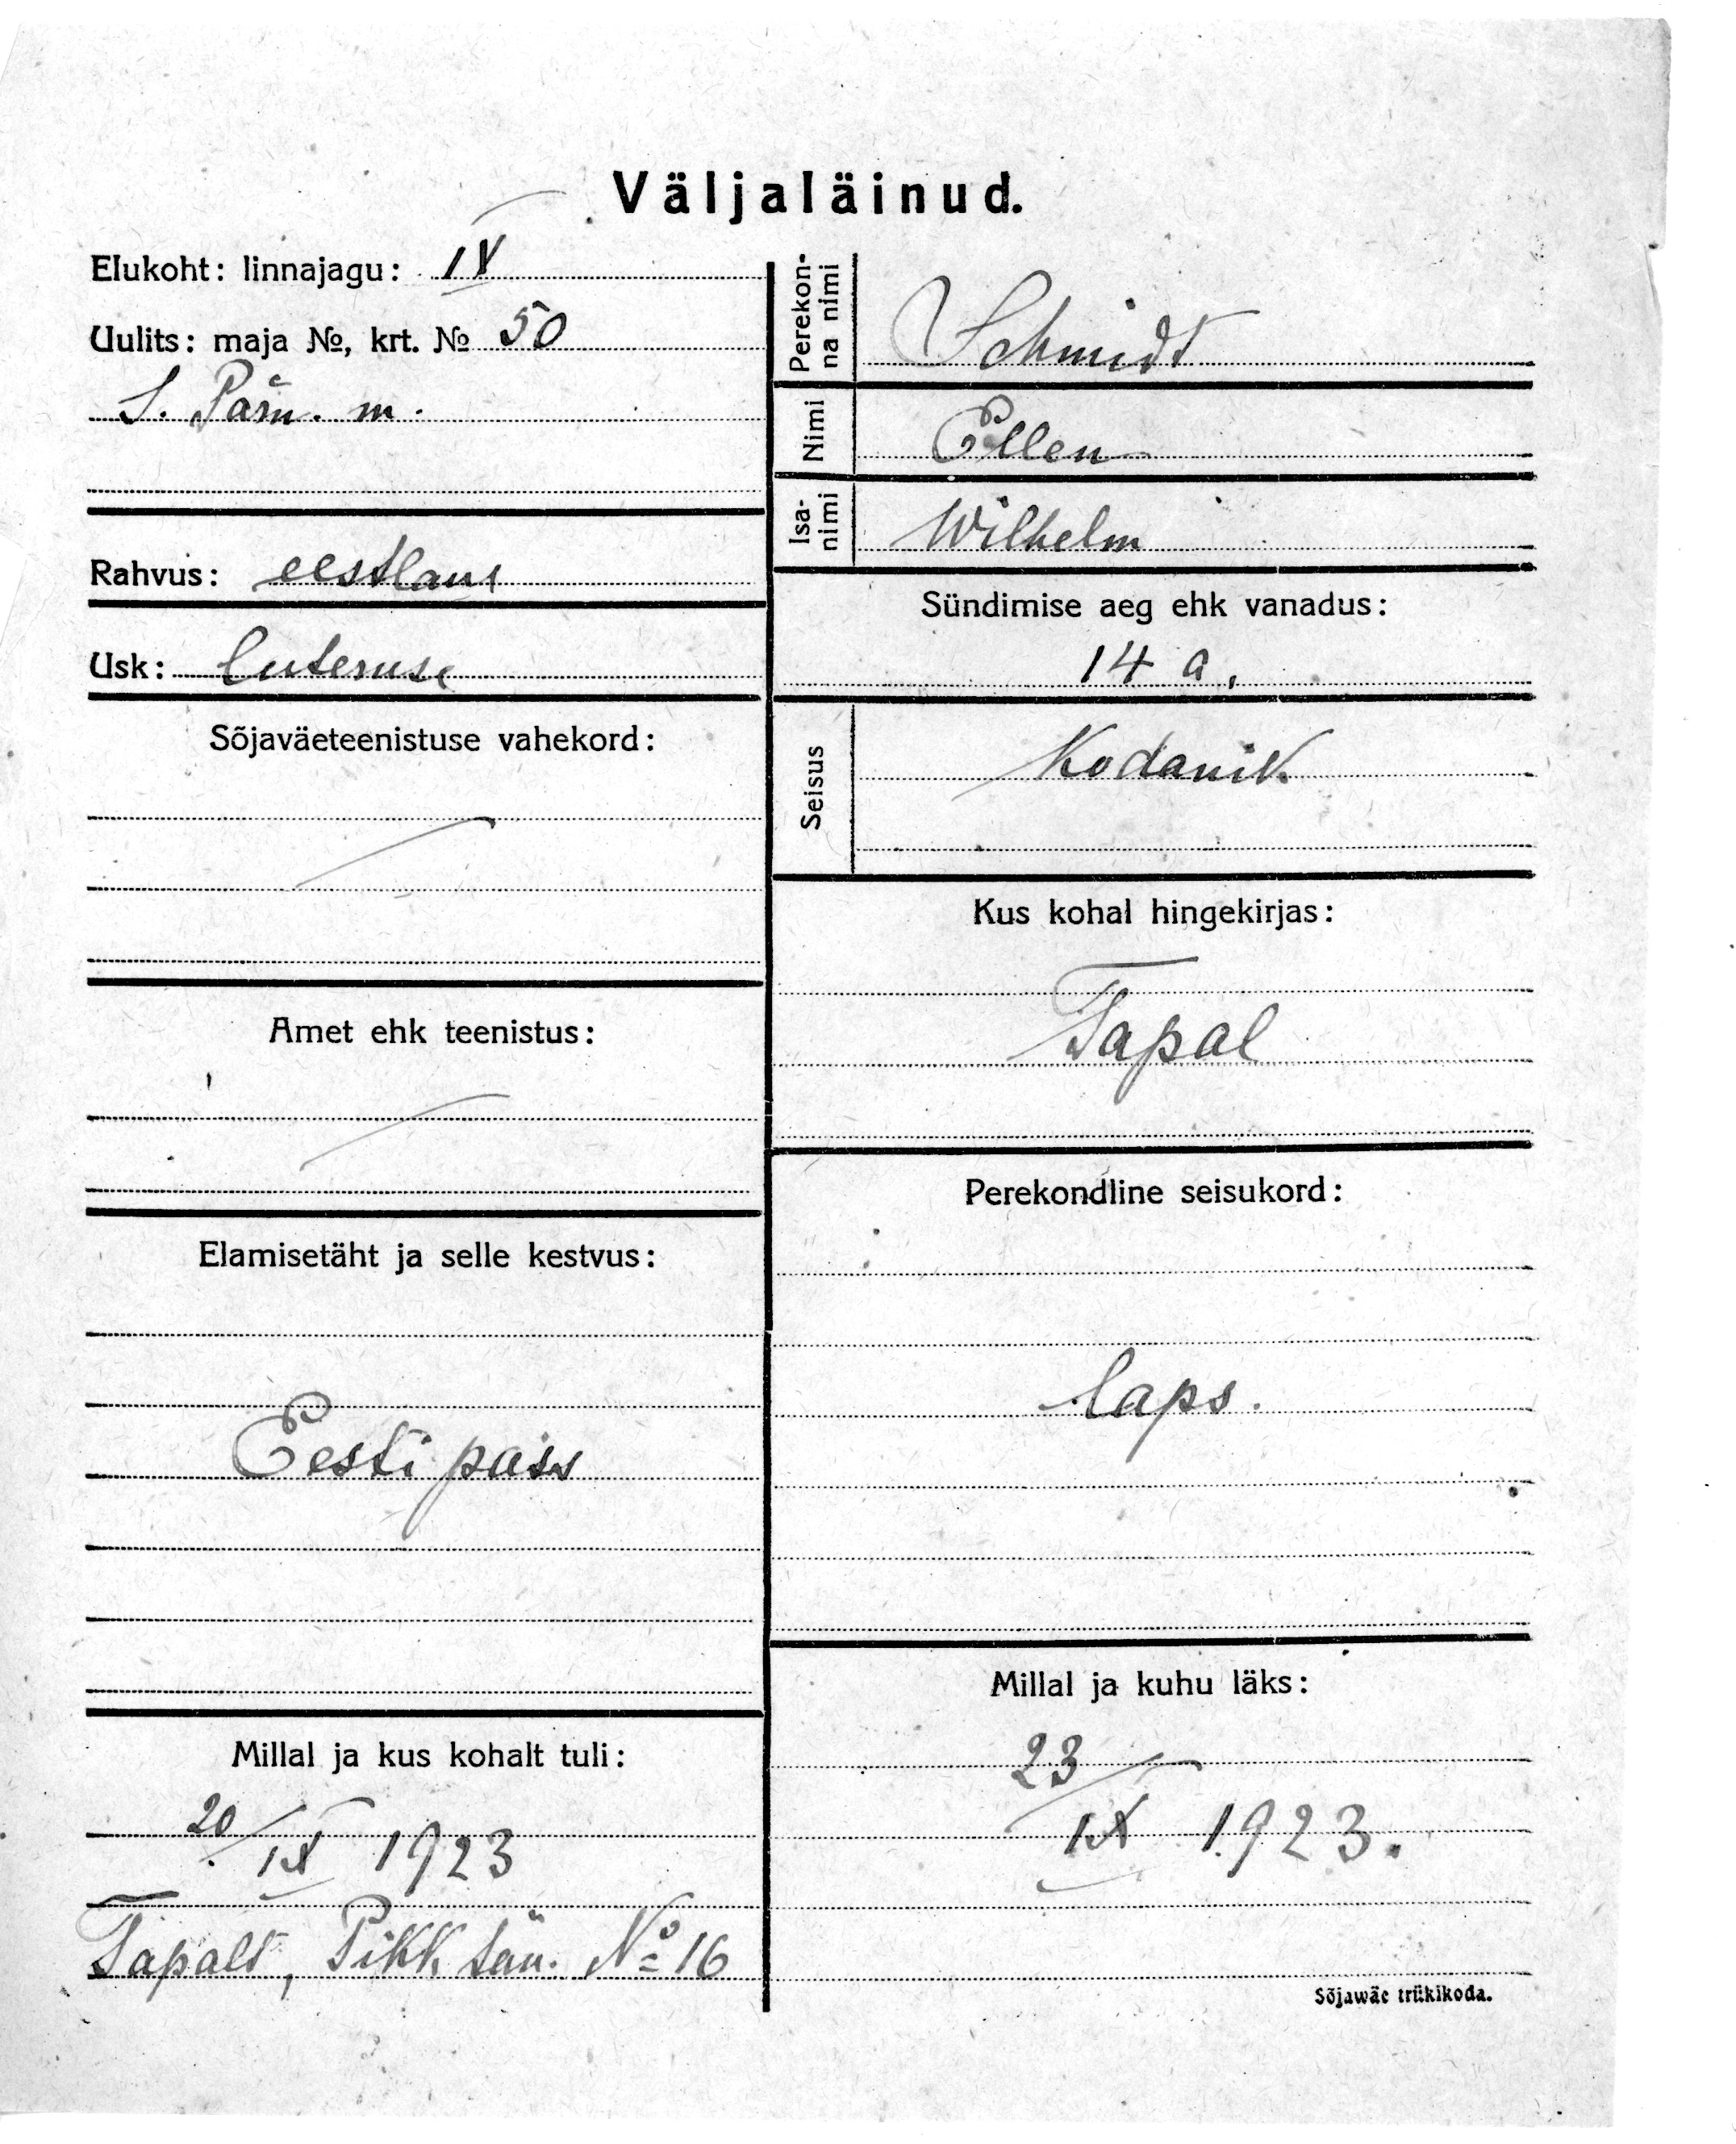 Väljaläinud.
Elukoht: linnajagu: IV
Uulits: maja №, krt. № 50
S. Pärn. m.
Rahvus: eestlane
Usk: luteruse
Sõjaväeteenistuse vahekord:
Amet ehk teenistus:
Elamisetäht ja selle kestvus:
Eesti pass
Millal ja kus kohalt tuli:
20/IX 1923
Tapalt, Pikk tän. № 16
Perekon-
na nimi
Schmidt
Nimi
Ellen
Isa-
nimi
Wilhelm
Sündimise aeg ehk vanadus:
14 a.
Seisus
Kodanik
Kus kohal hingekirjas:
Tapal
Perekondline seisukord:
laps.
Millal ja kuhu läks:
23/IX 1923.
Sõjawäe trükikoda.